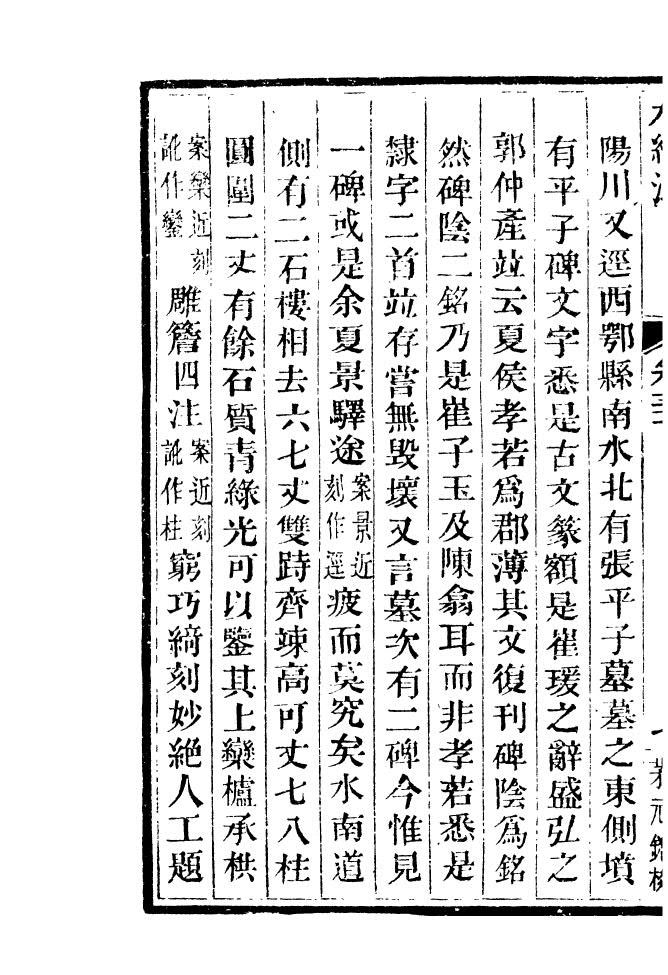 陽川又逕西鄂縣南水北有張平子墓墓之東側墳
有平子碑文字悉是古文篆額是崔瑗之辭盛弘之
郭仲產竝云夏侯孝若爲郡薄其文復刊碑陰爲銘
然碑陰二銘乃是崔子玉及陳翕耳而非孝若悉是
隸字二首竝存嘗無毀壞又言墓次有二碑今惟見
一碑或是余夏景驛途案景近刻作逕疲而莫究矣水南道
側有二石樓相去六七丈雙跱齊竦高可丈七八柱
圓圍二丈有餘石質青綠光可以鑒其上欒櫨承栱
案欒近刻訛作鑾雕簷四注案近刻訛作柱窮巧綺刻妙絕人工題